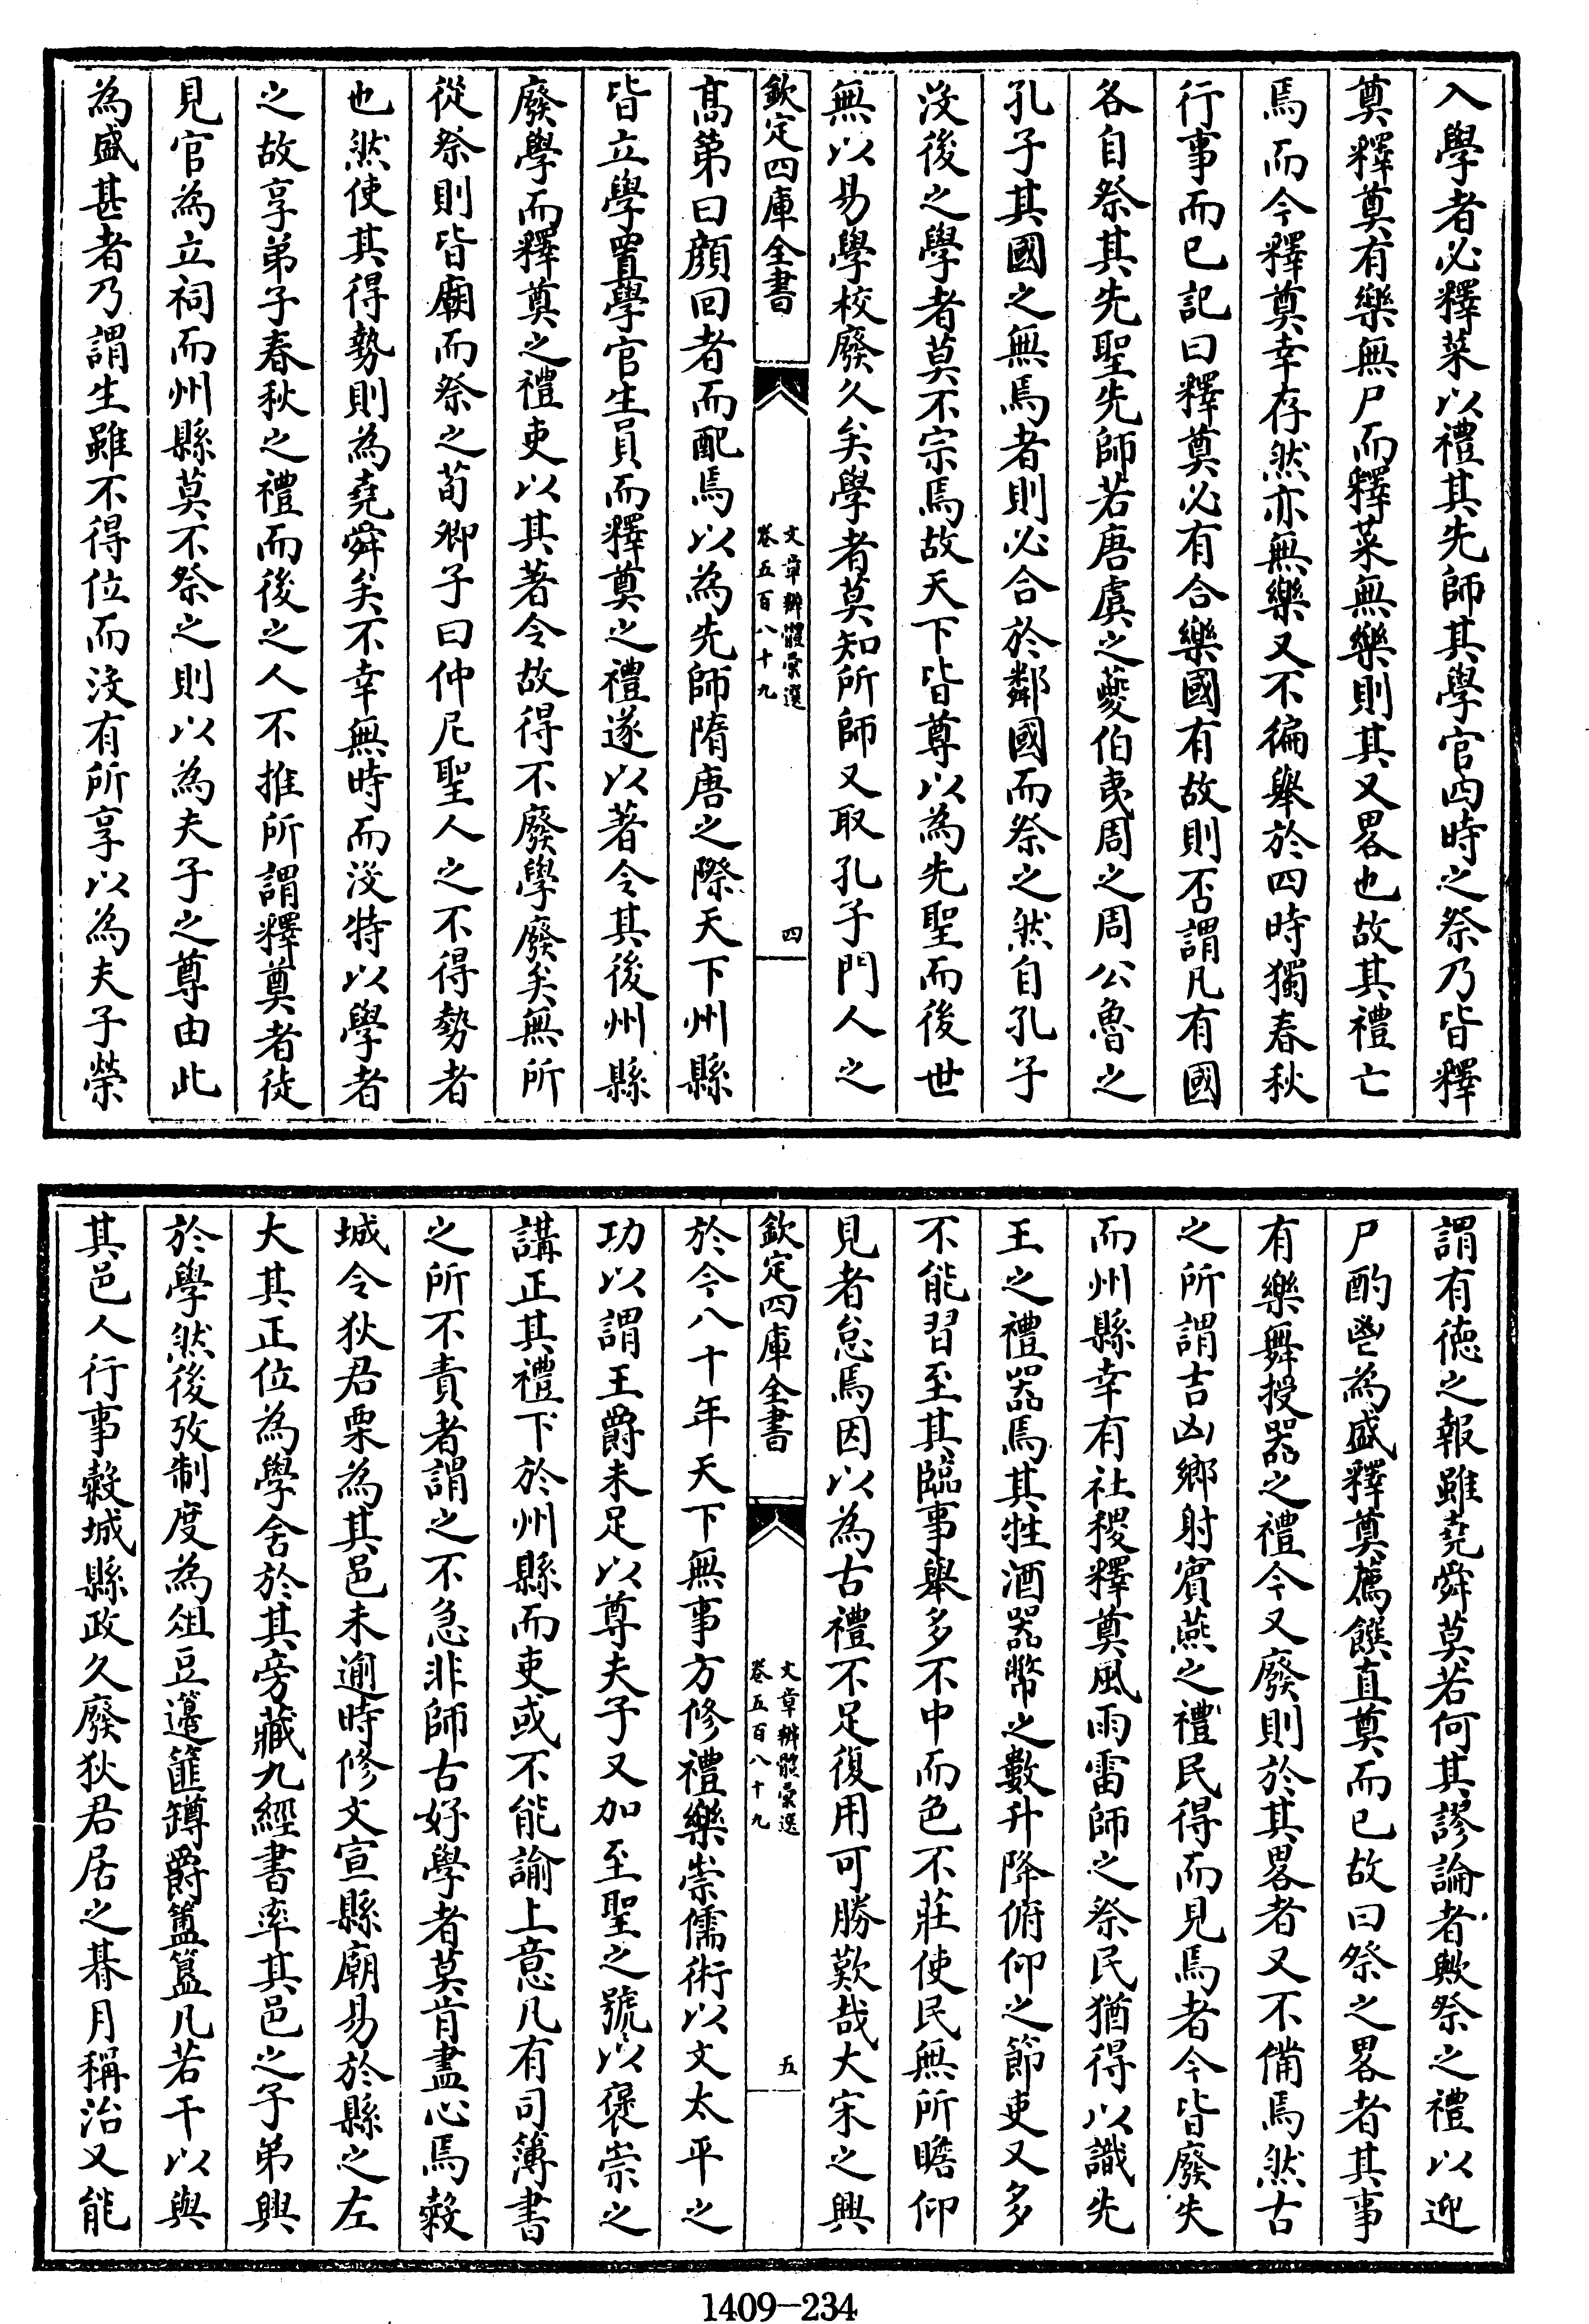 入學者必釋菜以禮其先師其學官四時之祭乃皆釋
奠釋奠有樂無尸而釋菜無樂則其又畧也故其禮亡
焉而今釋奠幸存然亦無樂又不徧舉於四時獨春秋
行事而已記曰釋奠必有合樂國有故則否謂凡有國
各自祭其先聖先師若唐虞之夔伯夷周之周公魯之
孔子其國之無焉者則必合於鄰國而祭之然自孔子
沒後之學者莫不宗焉故天下皆尊以為先聖而後世
無以易學校廢久矣學者莫知所師又取孔子門人之
欽定四庫全書
文章辨體彙選
卷五百八十九
四
高第曰顏回者而配焉以為先師隋唐之際天下州縣
皆立學置學官生員而釋奠之禮遂以著令其後州縣
廢學而釋奠之禮吏以其著令故得不廢學廢矣無所
從祭則皆廟而祭之荀卿子曰仲尼聖人之不得勢者
也然使其得勢則為堯舜矣不幸無時而沒特以學者
之故享弟子春秋之禮而後之人不推所謂釋奠者徒
見官為立祠而州縣莫不祭之則以為夫子之尊由此
為盛甚者乃謂生雖不得位而沒有所享以為夫子榮
謂有徳之報雖堯舜莫若何其謬論者歟祭之禮以迎
尸酌鬯為盛釋奠薦饌直奠而已故曰祭之畧者其事
有樂舞授器之禮今又廢則於其畧者又不備焉然古
之所謂吉凶鄉射賓燕之禮民得而見焉者今皆廢失
而州縣幸有社稷釋奠風雨雷師之祭民猶得以識先
王之禮器焉其牲酒器幣之數升降俯仰之節吏又多
不能習至其臨事舉多不中而色不莊使民無所瞻仰
見者怠焉因以為古禮不足復用可勝歎哉大宋之興
欽定四庫全書
文章辨體彙選
卷五百八十九
五
於今八十年天下無事方修禮樂崇儒術以文太平之
功以謂王爵未足以尊夫子又加至聖之號以褒崇之
講正其禮下於州縣而吏或不能諭上意凡有司簿書
之所不責者謂之不急非師古好學者莫肯盡心焉穀
城令狄君栗為其邑未逾時修文宣縣廟易於縣之左
大其正位為學舍於其旁藏九經書率其邑之子弟興
於學然後攷制度為俎豆籩篚罇爵簠簋凡若干以與
其邑人行事穀城縣政久廢狄君居之朞月稱治又能
1409-234